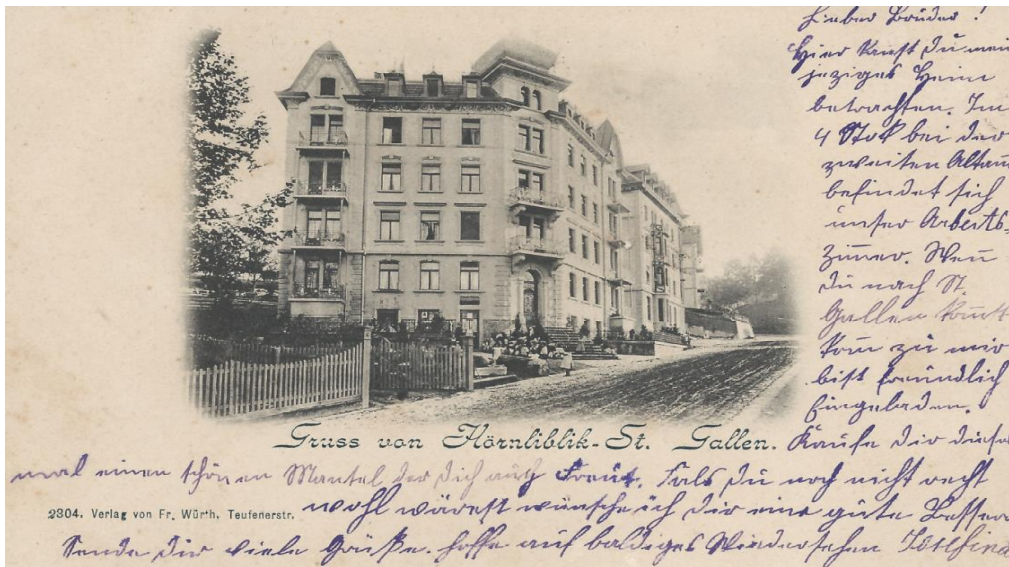 Lieber Bruder!
Hier kanst Du mein
jeziges Heim
betrachten. Im
4 Stok bei der
zweiten Altane
befindet sich
unser Arbeits-
zim̄er. Wen̄
Du nach St.
Gallen kom̄st
kom̄ zu mir
bist freundlich
Eingeladen.
Gruss von Hörnliblik-St. Gallen.
Kaufe Dir dies
mal einen schönen Mantel der Dich auch Freut. Fals Du noch nicht recht
2304. Verlag von Fr. Würth, Teufenerstr.
wohl wärest wünsche ich Dir eine gute Besser
Sende Dir viele Grüße. hoffe auf baldiges Wiedersehen